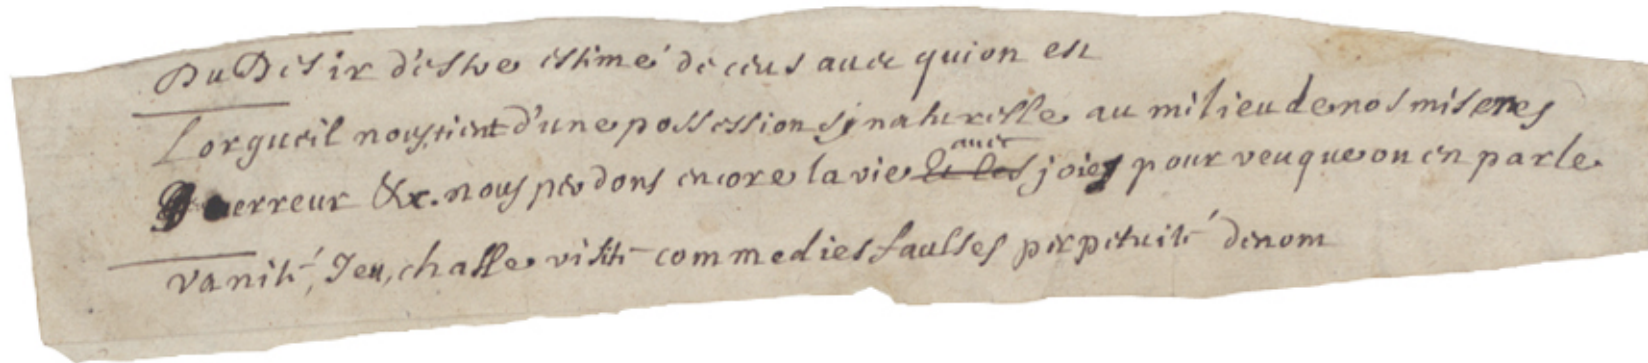 Du Desir d'estre estimé de ceus avec qui on est
L'orgueil nous tient d'une possession sy naturelle au milieu de nos miseres
erreur &c. nous perdons encore la vie avec joie pour veu que on en parle
vanité, Jeu, chasse visite commedies faulses perpetuité de nom